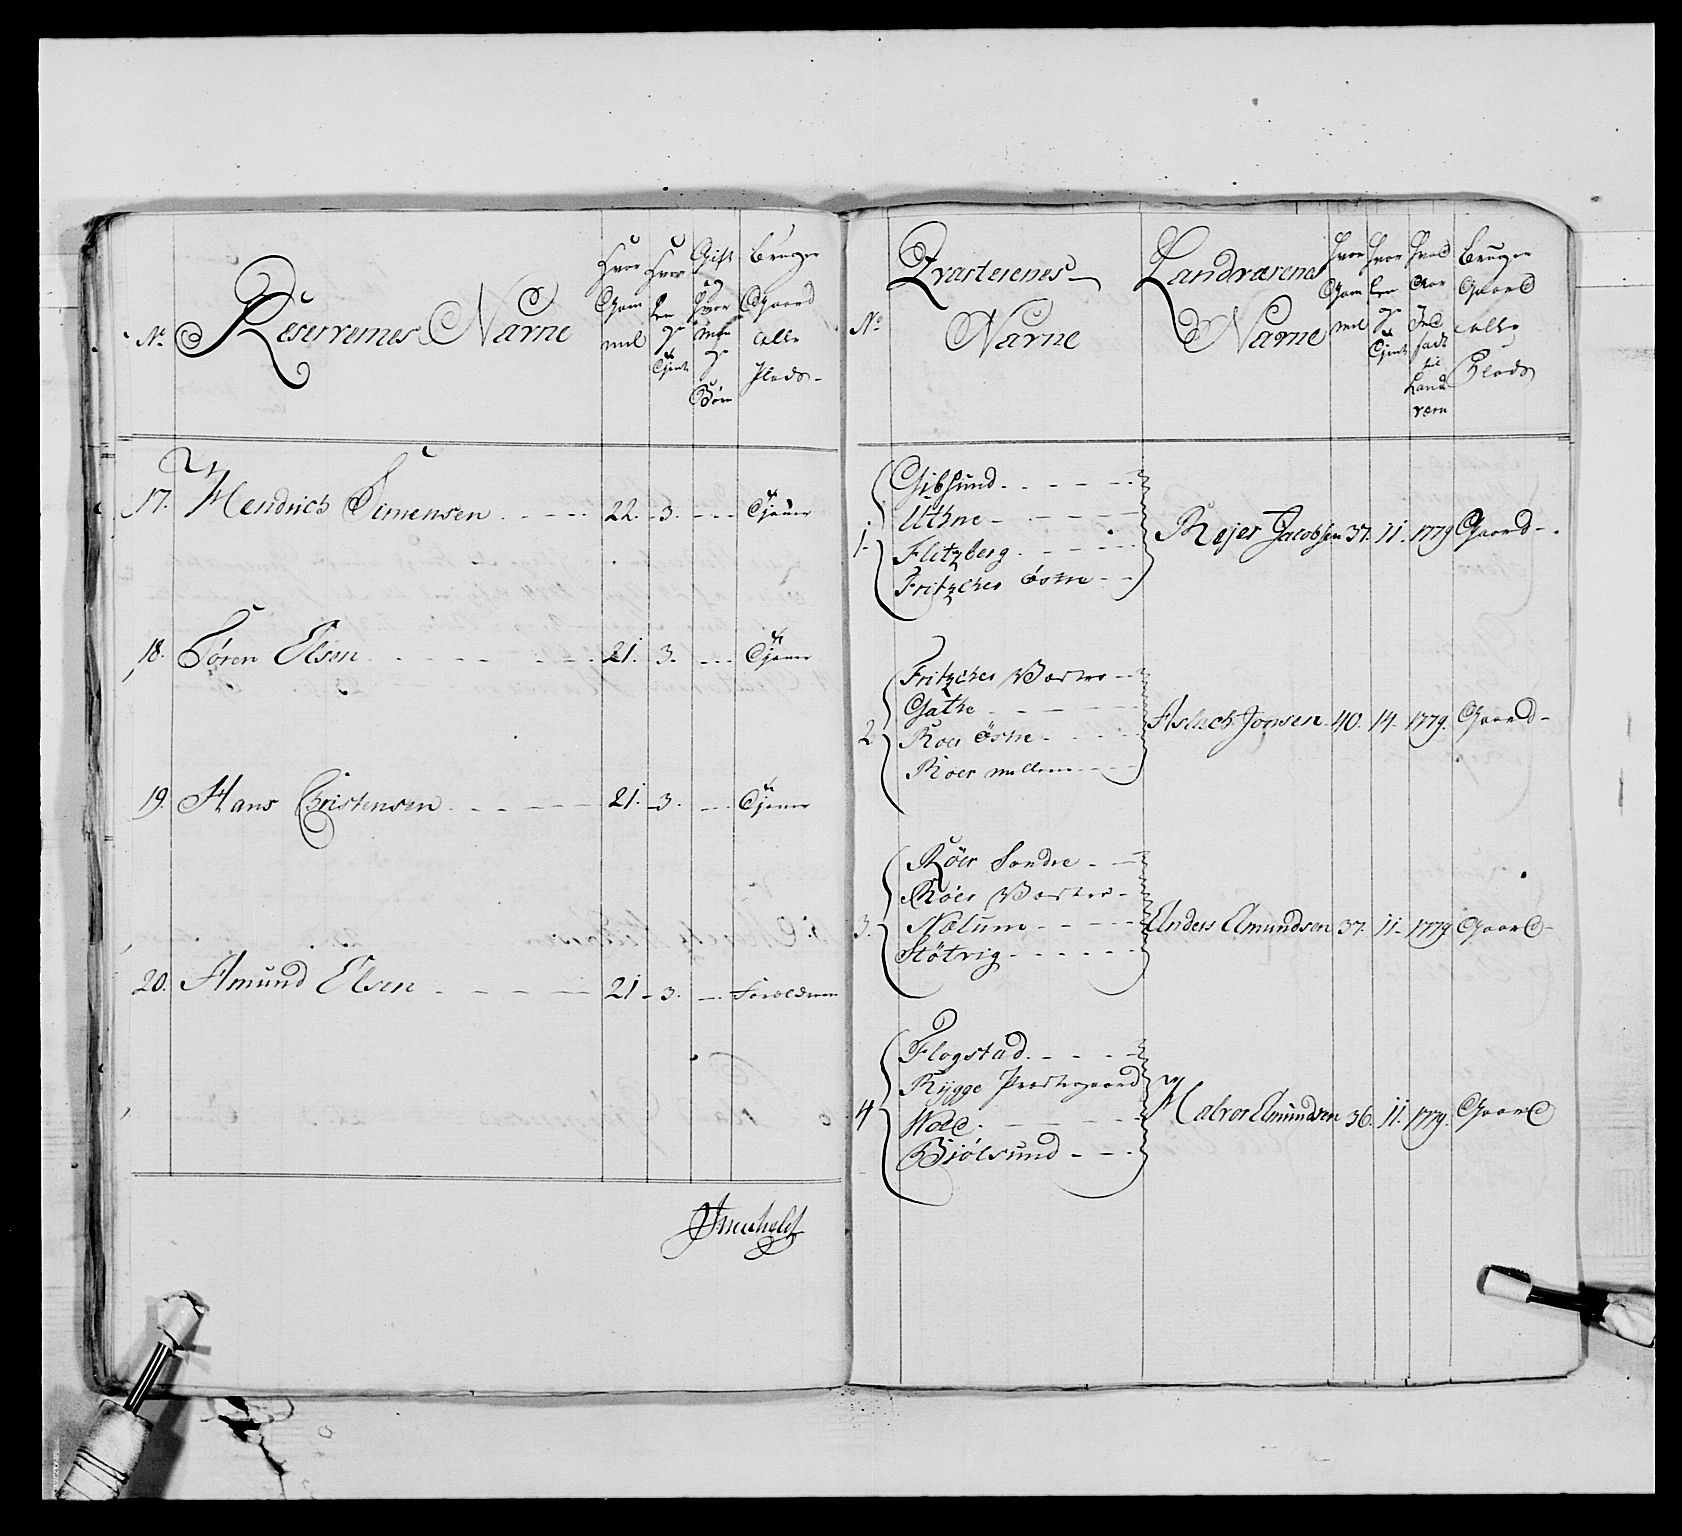 No.
Reservernes Navne
Hvor Gam mel
Hvor len ge tjent
Gift og Hvor mange Børn
Bruger Gaard eller Plads
17. Hendrich Simensen 22. 3. Tjener
18. Søren Elsen 21. 3. Tjener
19. Hans Christensen 21. 3. Tjener
20. Amund Elsen 21 3. Foreldrene
No.
Qvarterernes Navne
Landværnes Navne
Hvor Gam mel
Hvor len ge tjent
Hvad Aar Ind sadt til Land værn
Bruger Gaard eller Plads
1. Gibsund
Uthne
Flitzberg
Fritzches Østre
Rejer Jacobsen 37. 11. 1779 Gaard
2 Fritzches Vestre
Gathe
Roer Östre
Roer mellem
Aslach Jonsen 40. 14. 1779. Gaard
3. Röer Söndre
Röer Vestre
Nœlum
Störvig
Anders Amundsen 37. 11. 1779 Gaard
4 Flogstad
Rygge Præstegaard
Wold
Biölsund
Halvor Amundsen 36. 11. 1779. Gaard